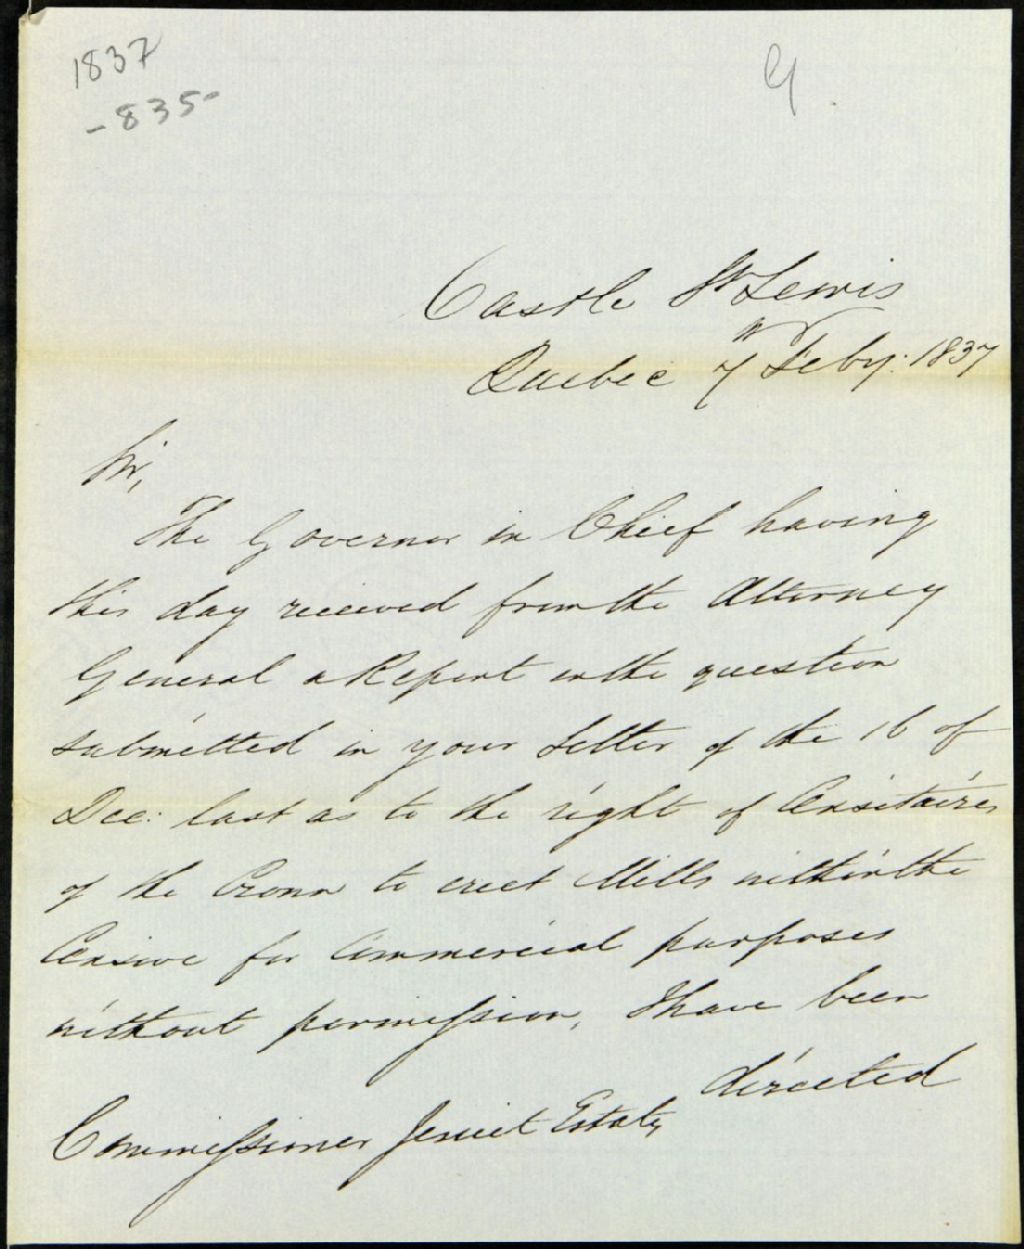 1837
-835-
Castle St Lewis
Quebec 7th Feby: 1837
Sir,
The Governor in Chief having
this day received from the Attorney
General a Report on the question
submitted in your Letter of the 16 of
Dec: last as to the right of Censitaires
of the Crown to erect Mills within the
Censive for Commercial purposes
without permission, I have been
directed
Commissioner Jesuit Estates